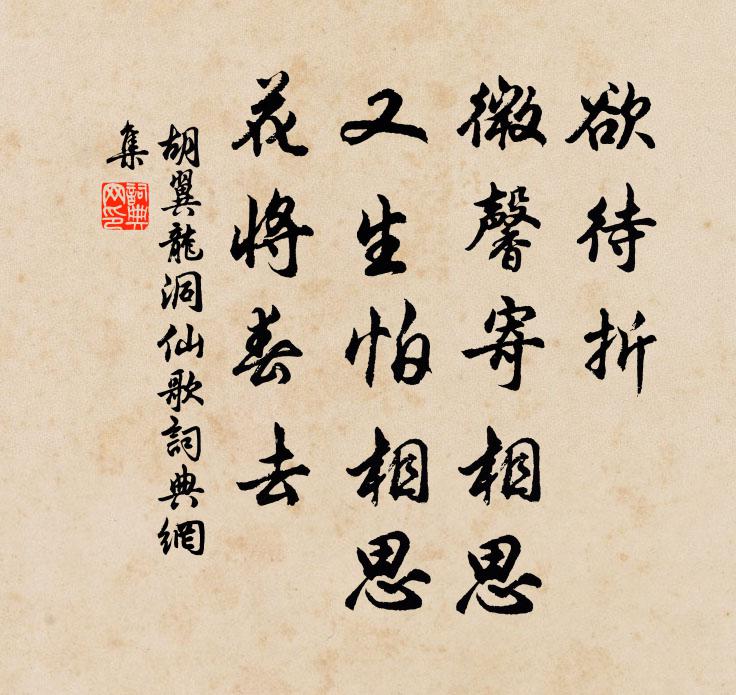 欲待折
微馨寄相思
又生怕相思
花將春去
胡翼龍洞仙歌詞典網
集
詞典
网印